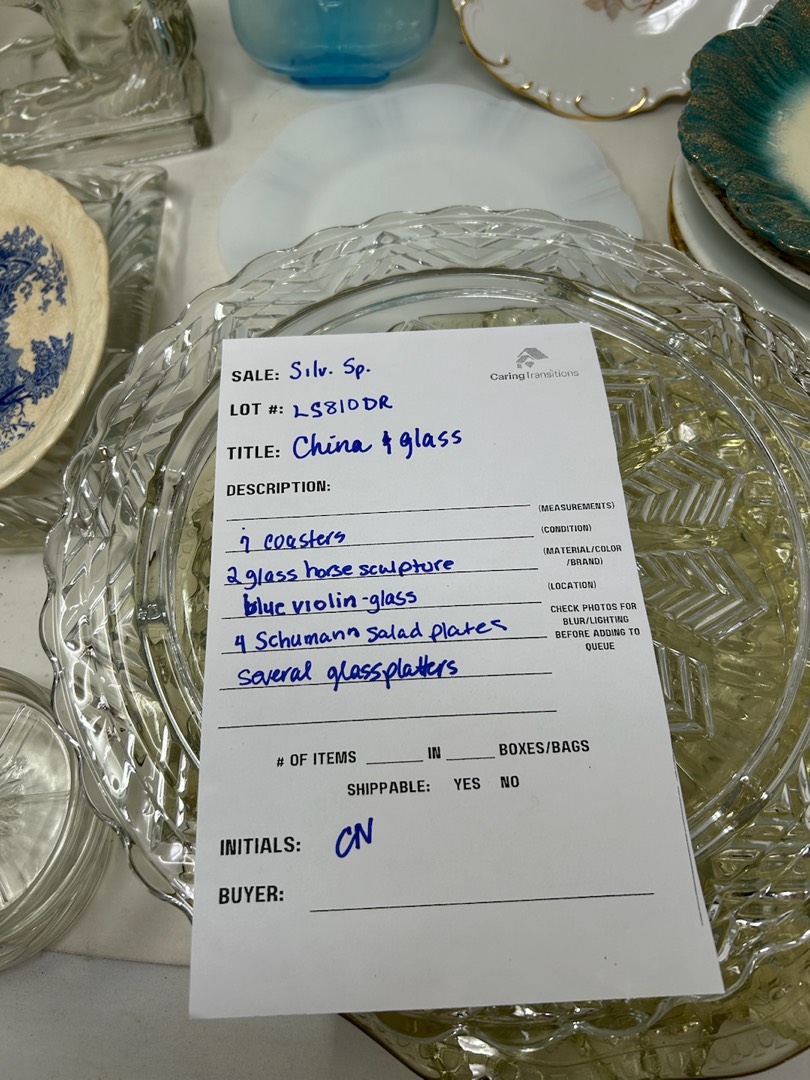 Caring Transitions
SALE: Silv. Sp.
LOT #: LS810DR
TITLE: China & glass
DESCRIPTION:
(MEASUREMENTS)
7 coasters (CONDITION)
2 glass horse sculpture (MATERIAL/COLOR
/BRAND)
blue violin-glass (LOCATION)
4 Schumann Salad plates
several glass platters
CHECK PHOTOS FOR
BLUR/LIGHTING
BEFORE ADDING TO
QUEUE
# OF ITEMS ______ IN ______ BOXES/BAGS
SHIPPABLE: YES NO
INITIALS: CN
BUYER: